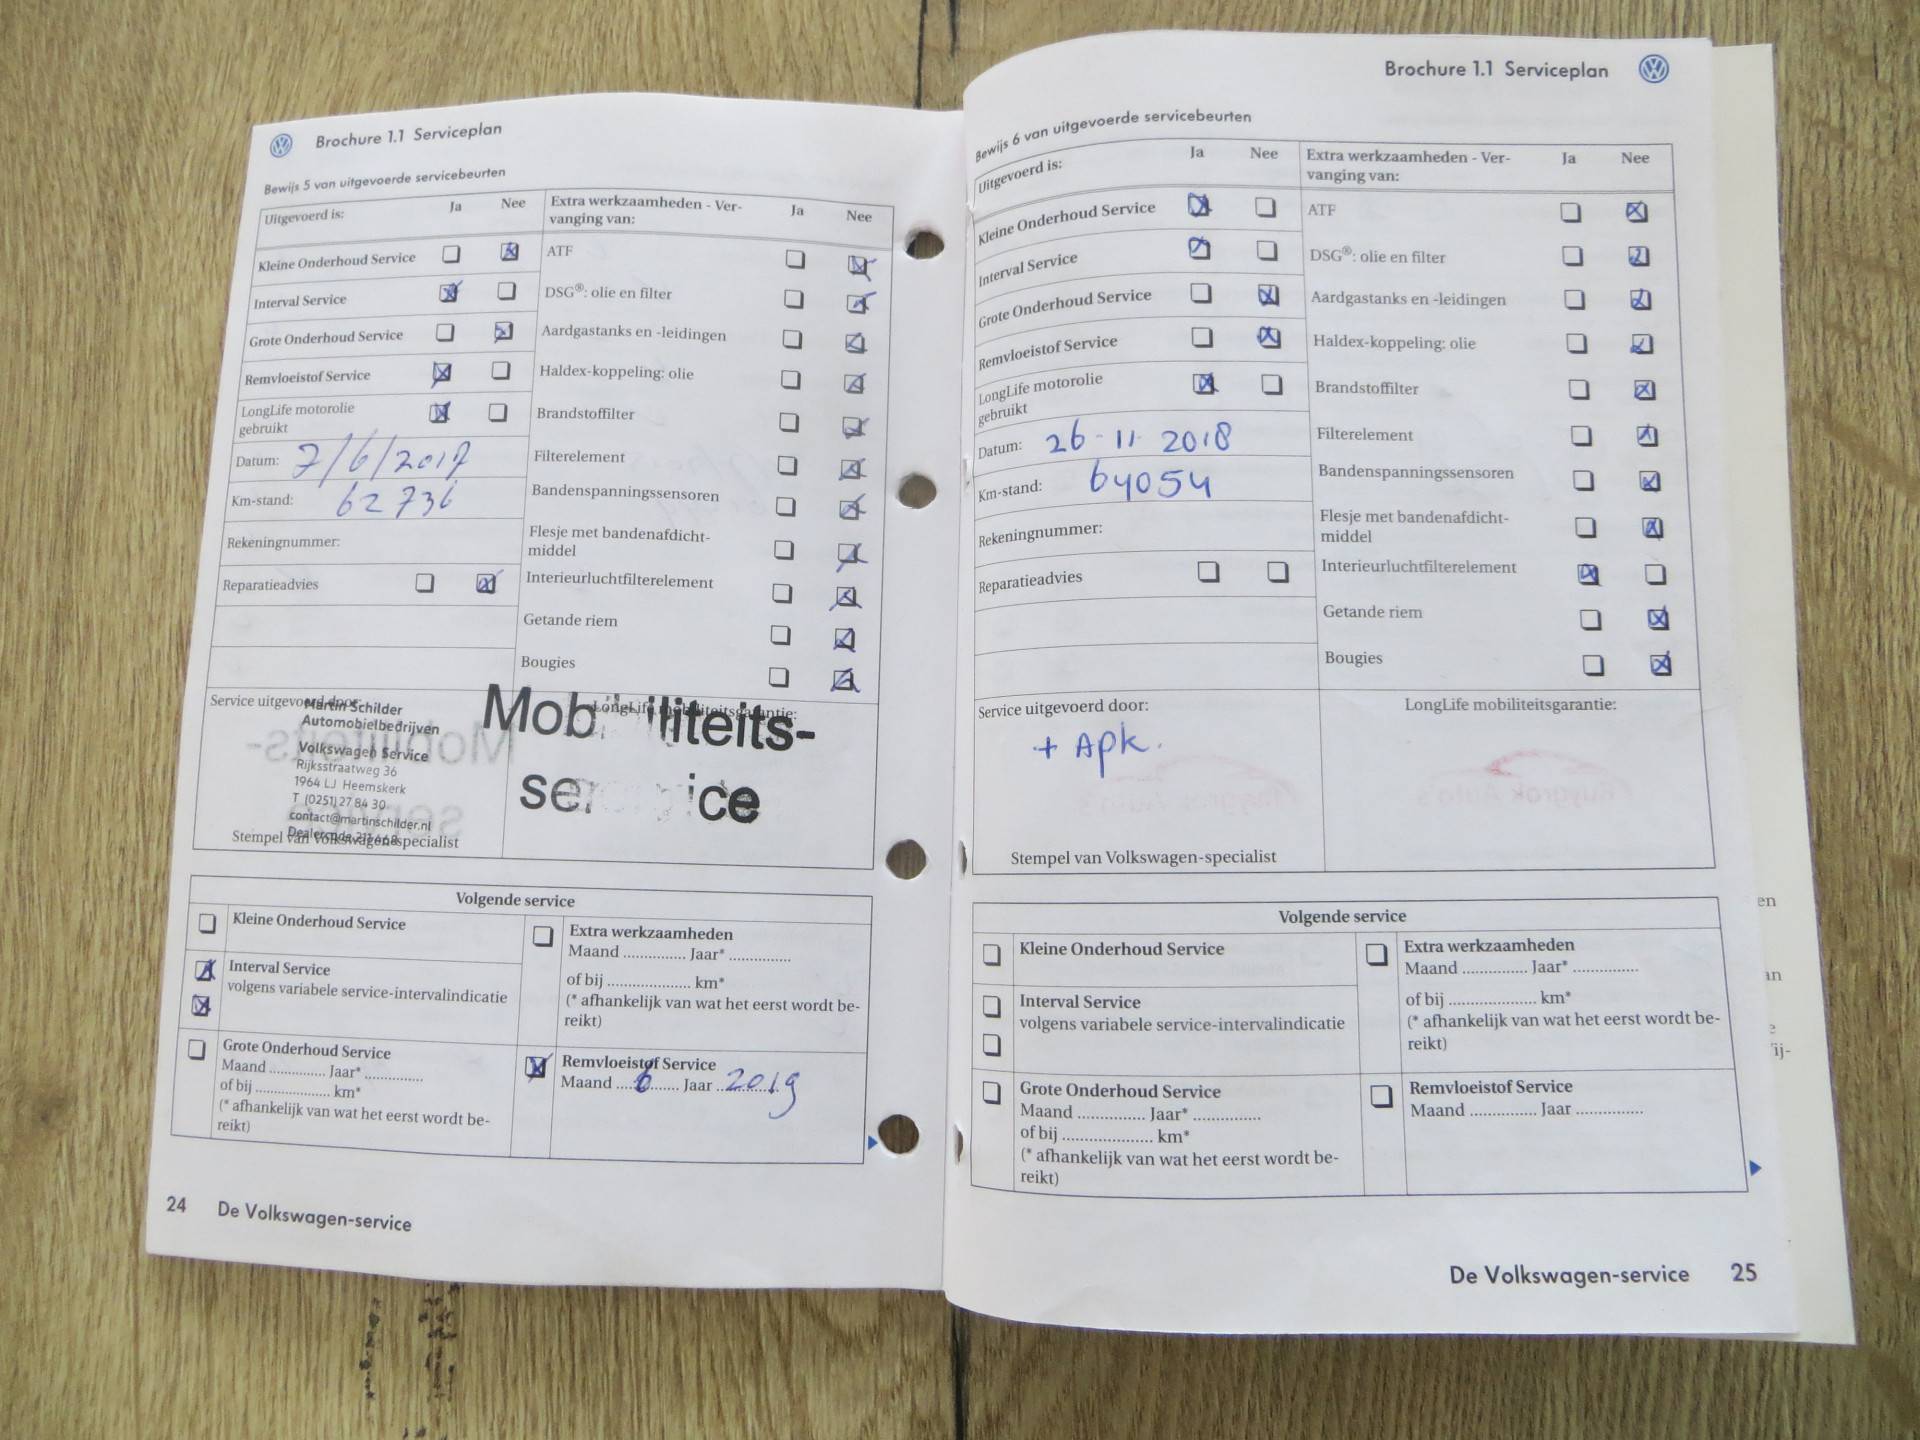 Brochure 1.1 Serviceplan
Bewijs 5 van uitgevoerde servicebeurten
Uitgevoerd is: Ja Nee
Kleine Onderhoud Service
Interval Service
Grote Onderhoud Service
Remvloeistof Service
LongLife motorolie
gebruikt
Datum: 7/6/2017
Km-stand: 62736
Rekeningnummer:
Reparatieadvies
Extra werkzaamheden - Ver-
vanging van: Ja Nee
ATF
DSG®: olie en filter
Aardgastanks en -leidingen
Haldex-koppeling: olie
Brandstoffilter
Filterelement
Bandenspanningssensoren
Flesje met bandenafdicht-
middel
Interieurluchtfilterelement
Getande riem
Bougies
Service uitgevoerd door:
Martin Schilder
Automobielbedrijven
Volkswagen Service
Rijksstraatweg 36
1964 LJ Heemskerk
T (0251) 27 84 30
contact@martinschilder.nl
Stempel van Volkswagen-specialist
LongLife mobiliteitsgarantie:
Mobiliteits-
service
Volgende service
Kleine Onderhoud Service
Interval Service
volgens variabele service-intervalindicatie
Grote Onderhoud Service
Maand .............. Jaar* ..............
of bij .................... km*
(* afhankelijk van wat het eerst wordt be-
reikt)
Extra werkzaamheden
Maand .............. Jaar* ..............
of bij .................... km*
(* afhankelijk van wat het eerst wordt be-
reikt)
Remvloeistof Service
Maand 6 Jaar 2019
24 De Volkswagen-service
Brochure 1.1 Serviceplan
Bewijs 6 van uitgevoerde servicebeurten
Uitgevoerd is: Ja Nee
Kleine Onderhoud Service
Interval Service
Grote Onderhoud Service
Remvloeistof Service
LongLife motorolie
gebruikt
Datum: 26-11-2018
Km-stand: 64054
Rekeningnummer:
Reparatieadvies
Extra werkzaamheden - Ver-
vanging van: Ja Nee
ATF
DSG®: olie en filter
Aardgastanks en -leidingen
Haldex-koppeling: olie
Brandstoffilter
Filterelement
Bandenspanningssensoren
Flesje met bandenafdicht-
middel
Interieurluchtfilterelement
Getande riem
Bougies
Service uitgevoerd door:
+ Apk.
Stempel van Volkswagen-specialist
LongLife mobiliteitsgarantie:
Volgende service
Kleine Onderhoud Service
Interval Service
volgens variabele service-intervalindicatie
Grote Onderhoud Service
Maand .............. Jaar* ..............
of bij .................... km*
(* afhankelijk van wat het eerst wordt be-
reikt)
Extra werkzaamheden
Maand .............. Jaar* ..............
of bij .................... km*
(* afhankelijk van wat het eerst wordt be-
reikt)
Remvloeistof Service
Maand .............. Jaar ..............
De Volkswagen-service 25